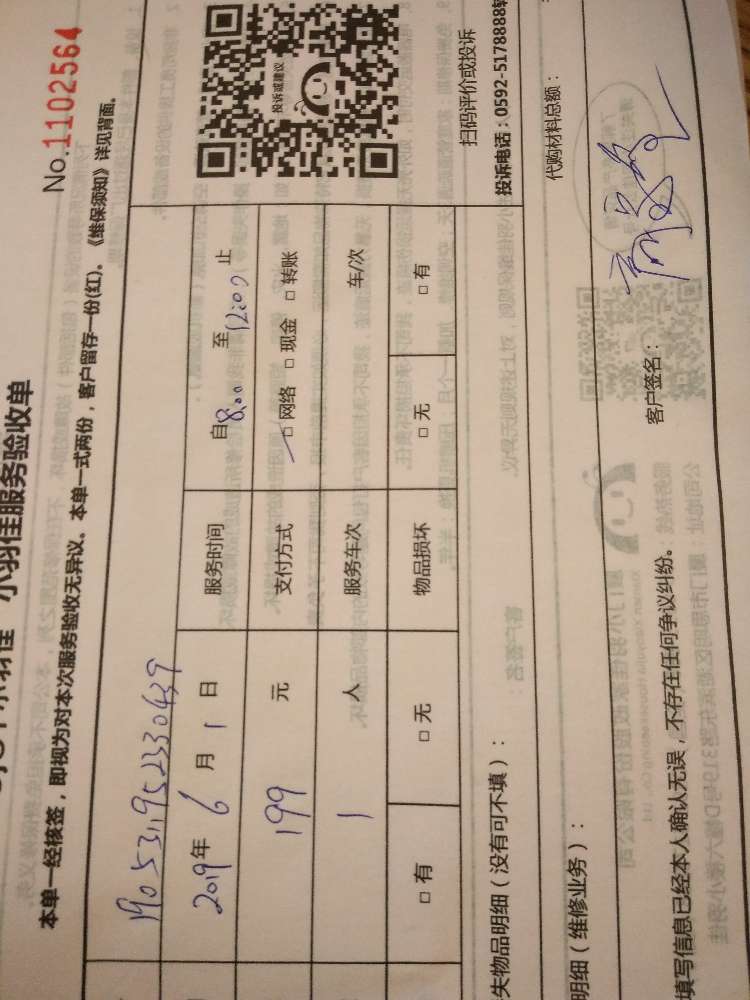 小羽佳服务验收单
No.1102564
本单一经核签，即视为对本次服务验收无异议。本单一式两份，客户留存一份(红)。《维保须知》详见背面。
1905311952330439
2019年 6 月 1 日 服务时间 自 8:00 至 12:00 止
199 元 支付方式 □ 网络 □ 现金 □ 转账
1 人 服务车次 车/次
□ 有 □ 无 物品损坏 □ 无 □ 有
投诉或建议
扫码评价或投诉
投诉电话：0592-5178888转
失物品明细（没有可不填）：
明细（维修业务）：
代购材料总额：
填写信息已经本人确认无误，不存在任何争议纠纷。
客户签名：